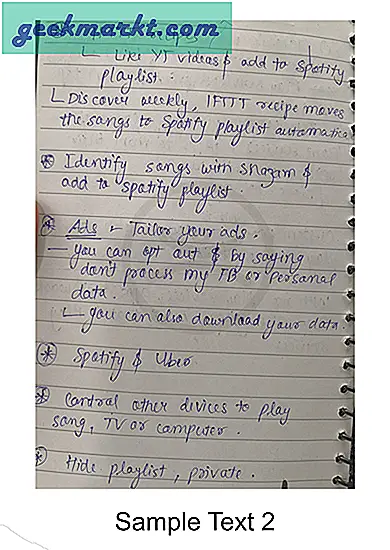 geekmarkt.com
Like YT videos & add to Spotify
playlist.
Discover weekly, IFTTT recipe moves
the songs to Spotify playlist automatica
Identify songs with shazam &
add to spotify playlist.
Ads - Tailor your ads.
you can opt out & by saying
don't process my FB or personal
data.
you can also download your data.
Spotify & Uber
Control other devices to play
song, TV or computer.
Hide playlist, private.
Sample Text 2